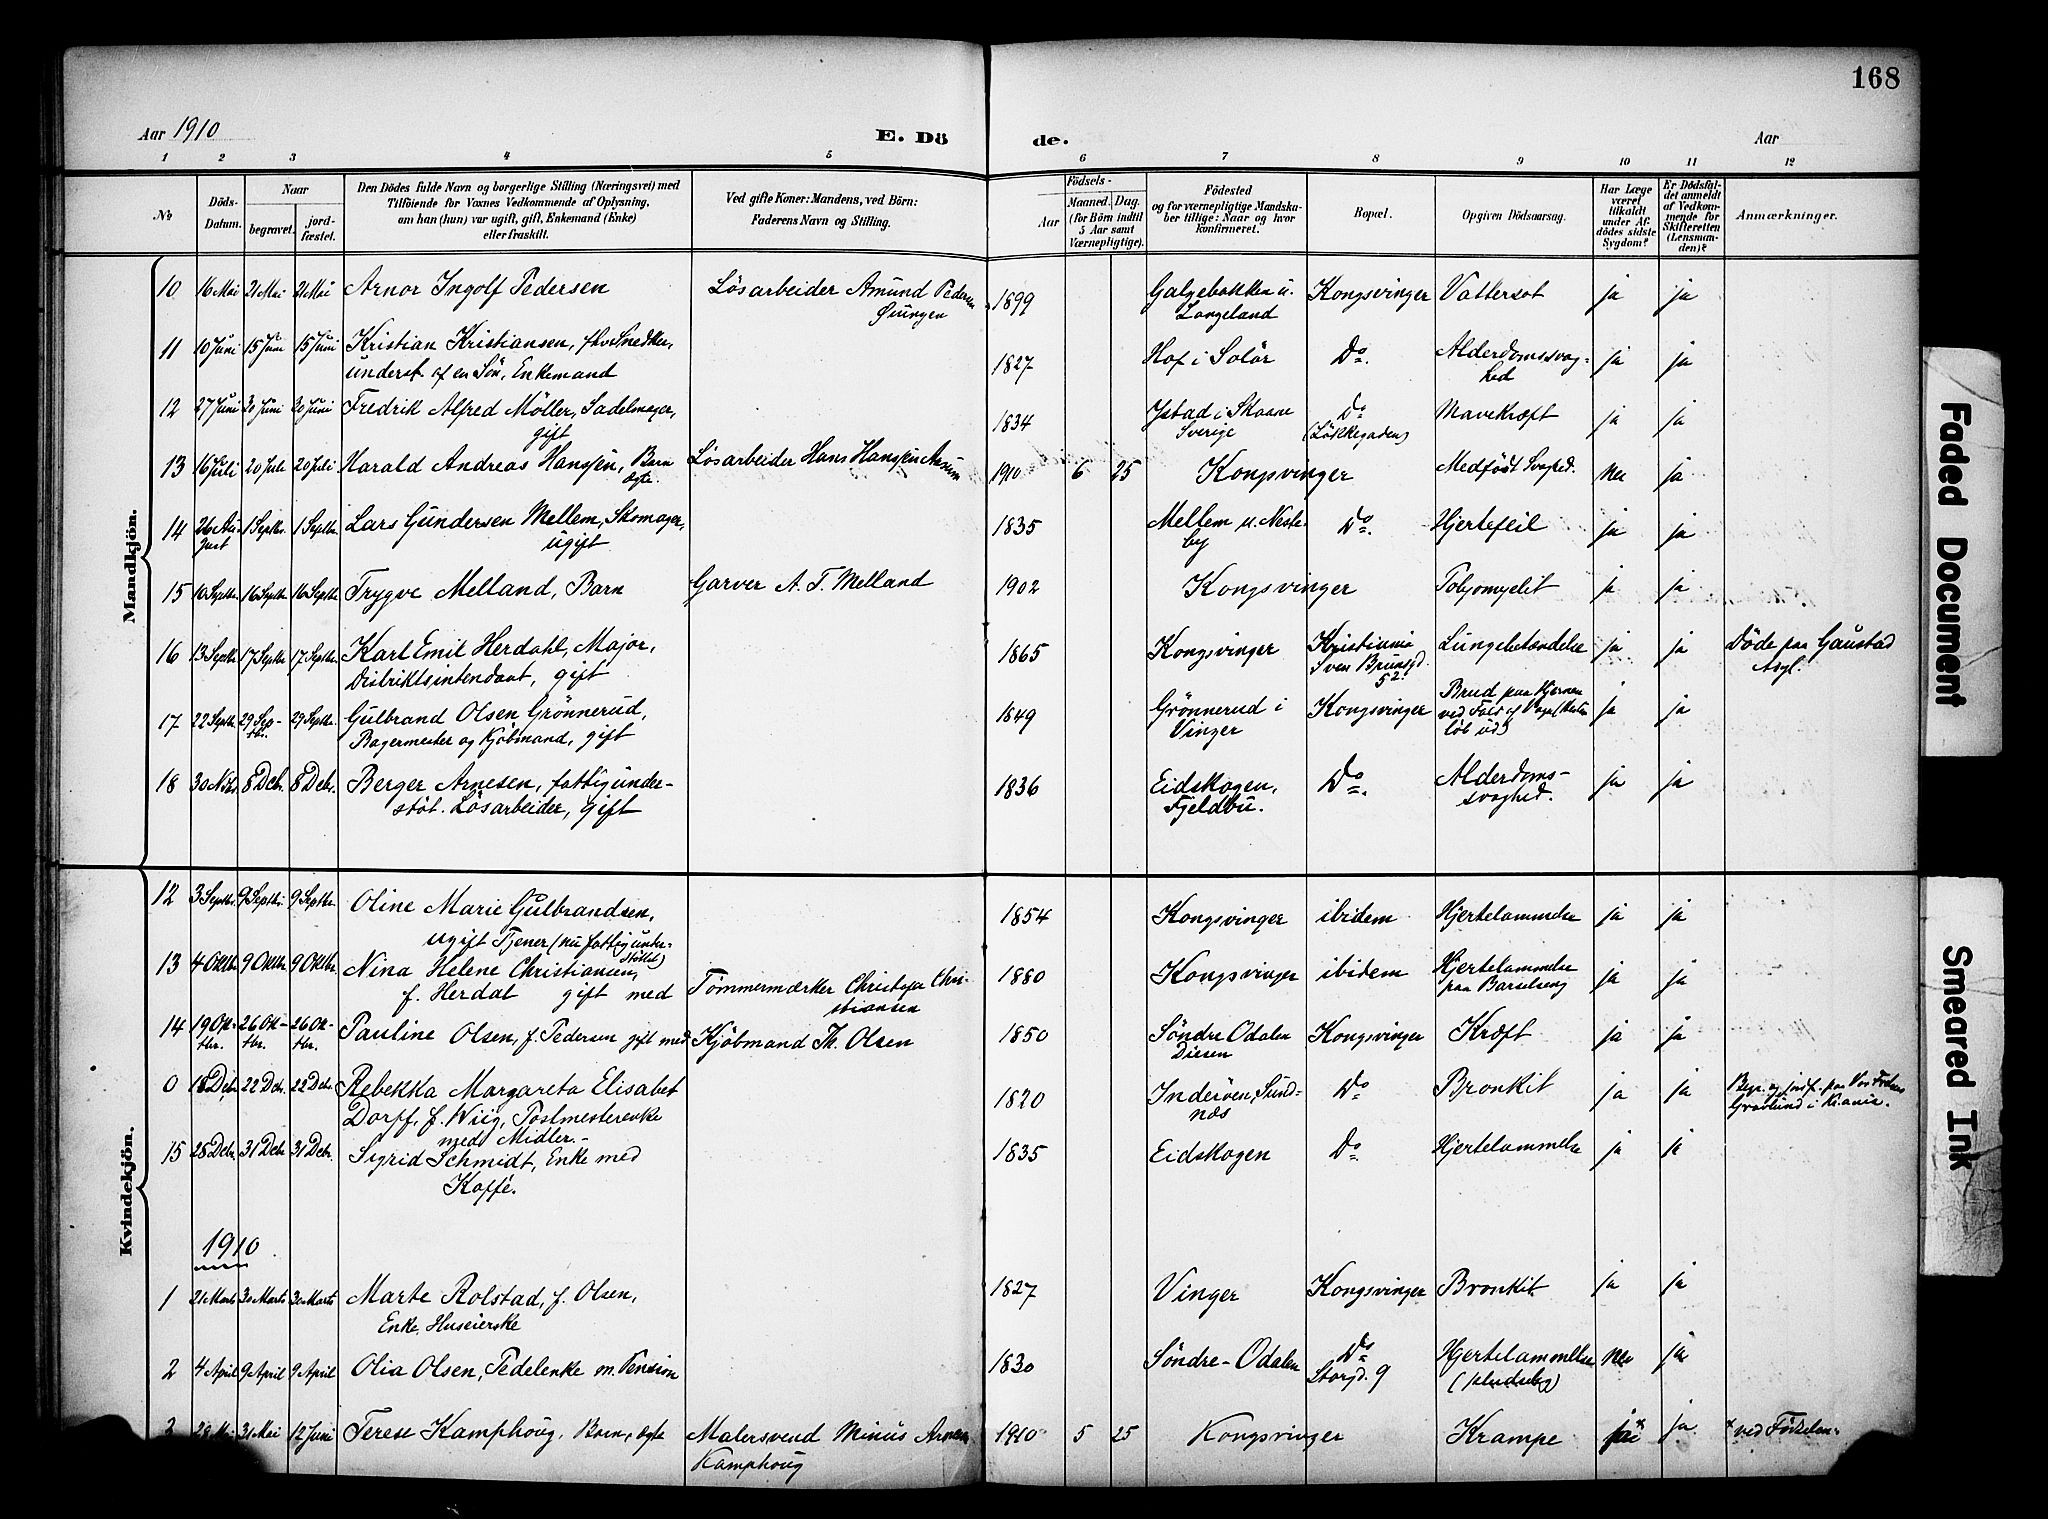 168
Aar 1910 E. Dö de. Aar
1 2 3 4 5 6 7 8 9 10 11 12
№
Döds-Datum.
Naar
begravet.
jordfæstet.
Den Dödes fulde Navn og borgerlige Stilling (Næringsvei) med
Tilföiende for Voxnes Vedkommende af Oplysning,
om han (hun) var ugift, gift, Enkemand (Enke)
eller fraskilt.
Ved gifte Koner: Mandens, ved Börn:
Faderens Navn og Stilling.
Födsels-
Aar
Maaned. Dag.
(for Börn indtil
5 Aar samt
Værnepligtige).
Födested
og for værnepligtige Mandska-
ber tillige: Naar og hvor
konfirmeret.
Bopæl.
Opgiven Dödsaarsag.
Har Læge
været
tilkaldt
under Af-
dödes sidste
Sygdom?
Er Dödsfal-
det anmeldt
af Vedkom-
mende for
Skifteretten
(Lensman-
den)?
Anmærkninger.
Mandkjön.
10 16 Mai 21 Mai 21 Mai Arnor Ingolf Pedersen Lösarbeider Amund Pedersen 1899 Galgebakken u. Kongsvinger Vattersot ja ja
Langeland
11 10 Juni 15 Juni 15 Juni Kristian Kristiansen, fhv Snedker, 1827 Hof i Solör Do. Alderdomssvag- ja ja
underst. af en Sön, Enkemand hed
12 27 Juni 30 Juni 30 Juni Fredrik Alfred Möller, Sadelmager, 1834 Ystad i Skaane Do Mavekræft ja ja
gift Sverige (Løkkegaden)
13 16 Juli 20 Juli 20 Juli Harald Andreas Hanssen, Barn Lösarbeider Hans Hanssen 1910 6 25 Kongsvinger Medfödt Svaghed. nei ja
ægte.
14 26 Au- 1 Septbr. 1 Septbr. Lars Gundersen Mellem, Skomager, 1835 Mellem u. Neste- Do. Hjertefeil ja ja
gust ugift by
15 10 Septbr. 16 Septbr 16 Septbr Trygve Melland, Barn Garver A. T. Melland 1902 Kongsvinger Polyomyelit ja ja
16 13 Septbr 17 Septbr 17 Septbr. Karl Emil Herdahl, Major, 1865 Kongsvinger Kristiania Lungebetændelse ja ja Döde paa Gaustad
Distriktsintendant, gift Sven Brunsgd. 52. Asyl.
17 22 Septbr. 29 Sep- 29 Septbr. Gulbrand Olsen Grönnerud, 1849 Grönnerud i Kongsvinger Brud paa Hjernen ja ja
tbr. Bagermester og Kjöbmand, gift Vinger ved Fald af Vogn (Hesten
löb ud)
18 30 Novbr 8 Debr. 8 Debr. Berger Arnesen, fattigunder- 1836 Eidskogen, Do. Alderdoms- ja ja
støt. Lösarbeider, gift Fjeldbu. svaghed.
Kvindekjön.
12 3 Septbr. 9 Septbr. 9 Septbr Oline Marie Gulbrandsen, 1854 Kongsvinger ibidem Hjertelammelse ja ja
ugift Tjener (nu fattigunder-
støttet)
13 4 Oktbr. 9 Oktbr. 9 Oktbr. Nina Helene Christiansen, Tömmermærker Christopher Chri- 1880 Kongsvinger ibidem Hjertelammelse ja ja
f. Herdal gift med stiansen paa Barselseng
14 19 Ok- 26 Ok- 26 Ok- Pauline Olsen, f. Pedersen gift med Kjöbmand Th. Olsen 1850 Söndre Odalen Kongsvinger Kræft ja ja
tbr. tbr. tbr. Diesen
0 18 Debr. 22 Debr. 22 Debr Rebekka Margareta Elisabet 1820 Inderöen, Sund- Do Bronkit ja ja Begr. og jordf. paa Vor Frelsers
Dorff, f. Wiig, Postmesterenke næs Gravlund i Kr.ania.
med Midler.-
15 28 Debr. 31 Debr 31 Debr. Sigrid Schmidt, Enke med 1835 Eidskogen Do Hjertelammelse ja ja
Kaffé.
1910
1 21 Marts 30 Marts 30 Marts Marte Rolstad, f. Olsen, 1827 Vinger Kongsvinger Bronkit ja ja
Enke, Huseierske
2 4 April 9 April 9 April Olia Olsen, Pedelenke m. Pension 1830 Söndre-Odalen Do Hjertelammelse nei ja
Storgd. 9
3 28 Mai 31 Mai 12 Juni Terese Kamphoug, Barn, ægte Malersvend Minius Arnesen 1910 5 25 Kongsvinger Krampe ja× ja × ved Fødselen
Kamphoug
Faded Document
Smeared Ink